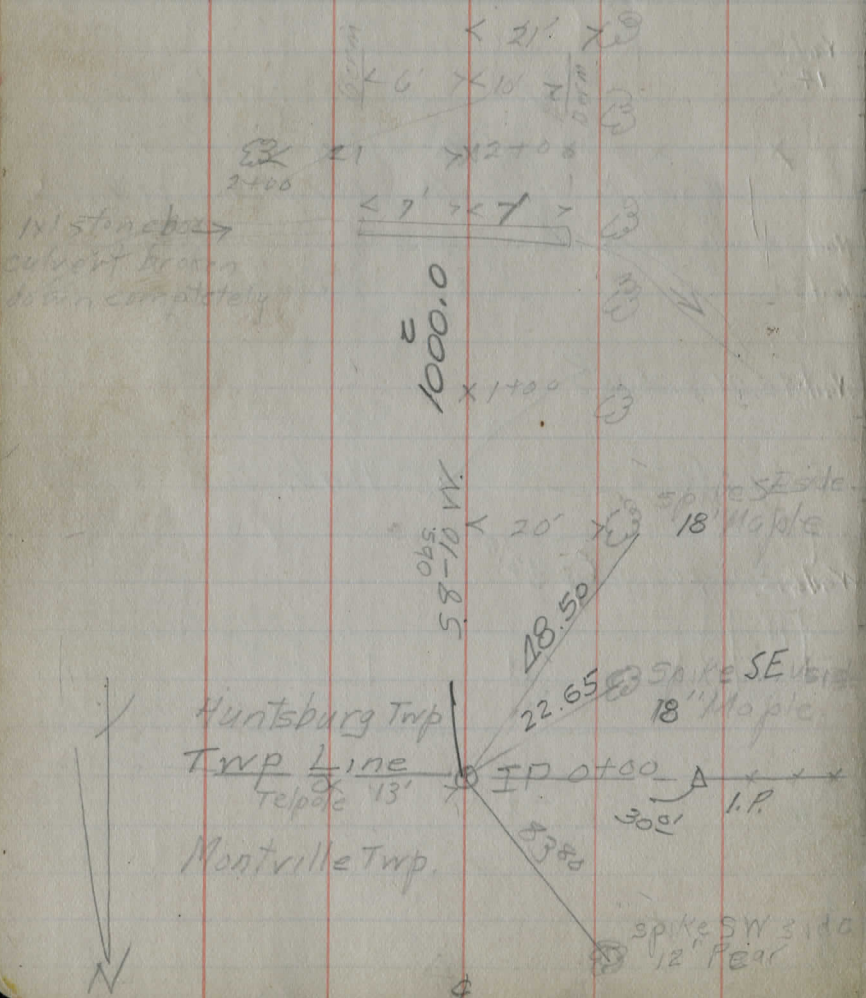 < 21' >
< 6' >< 10' >
2+00
2+00
< 7' >< 7' >
1x1 stone box →
culvert broken
down completely
1000.0
x 1+00
S8-10 W.
Spike SE side
18" Maple
< 20' >
48.50
22.65
Spike SE side
18" Maple
Huntsburg Twp
Twp Line
IP 0+00
Telpole 13'
30
I.P.
83.80
Montville Twp.
spike SW side
12" Pear
N